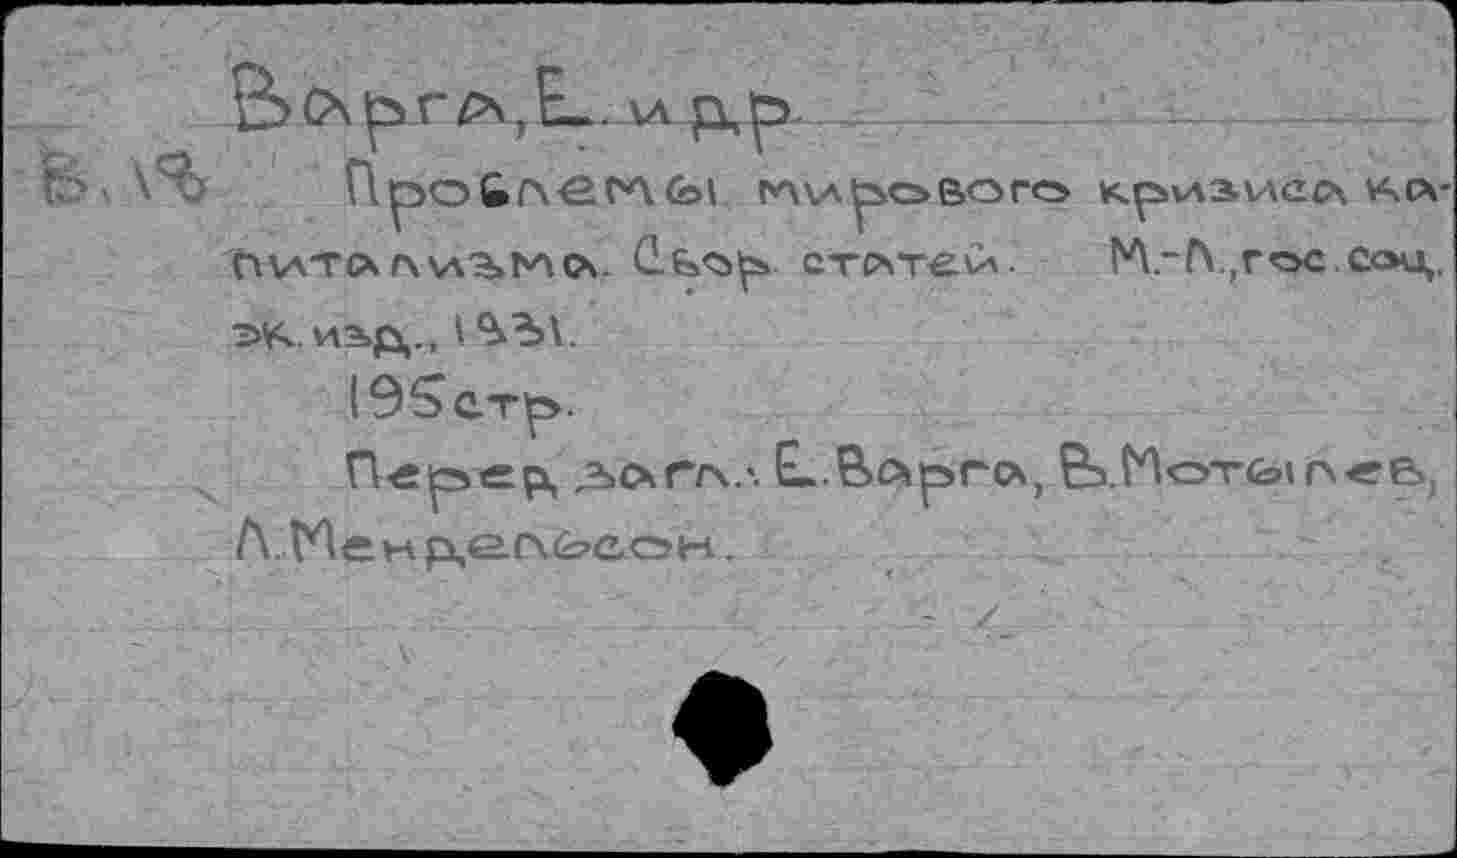 Варга, Е. и др.
Проблемы мирового кризиса ка-
питализма. Сбор. статей. М.-Л., гос. соц.
эк. изд., 1931.
195 стр.
Перед загл.: Е. Варга, В. Мотылев,
Л. Мендельсон.